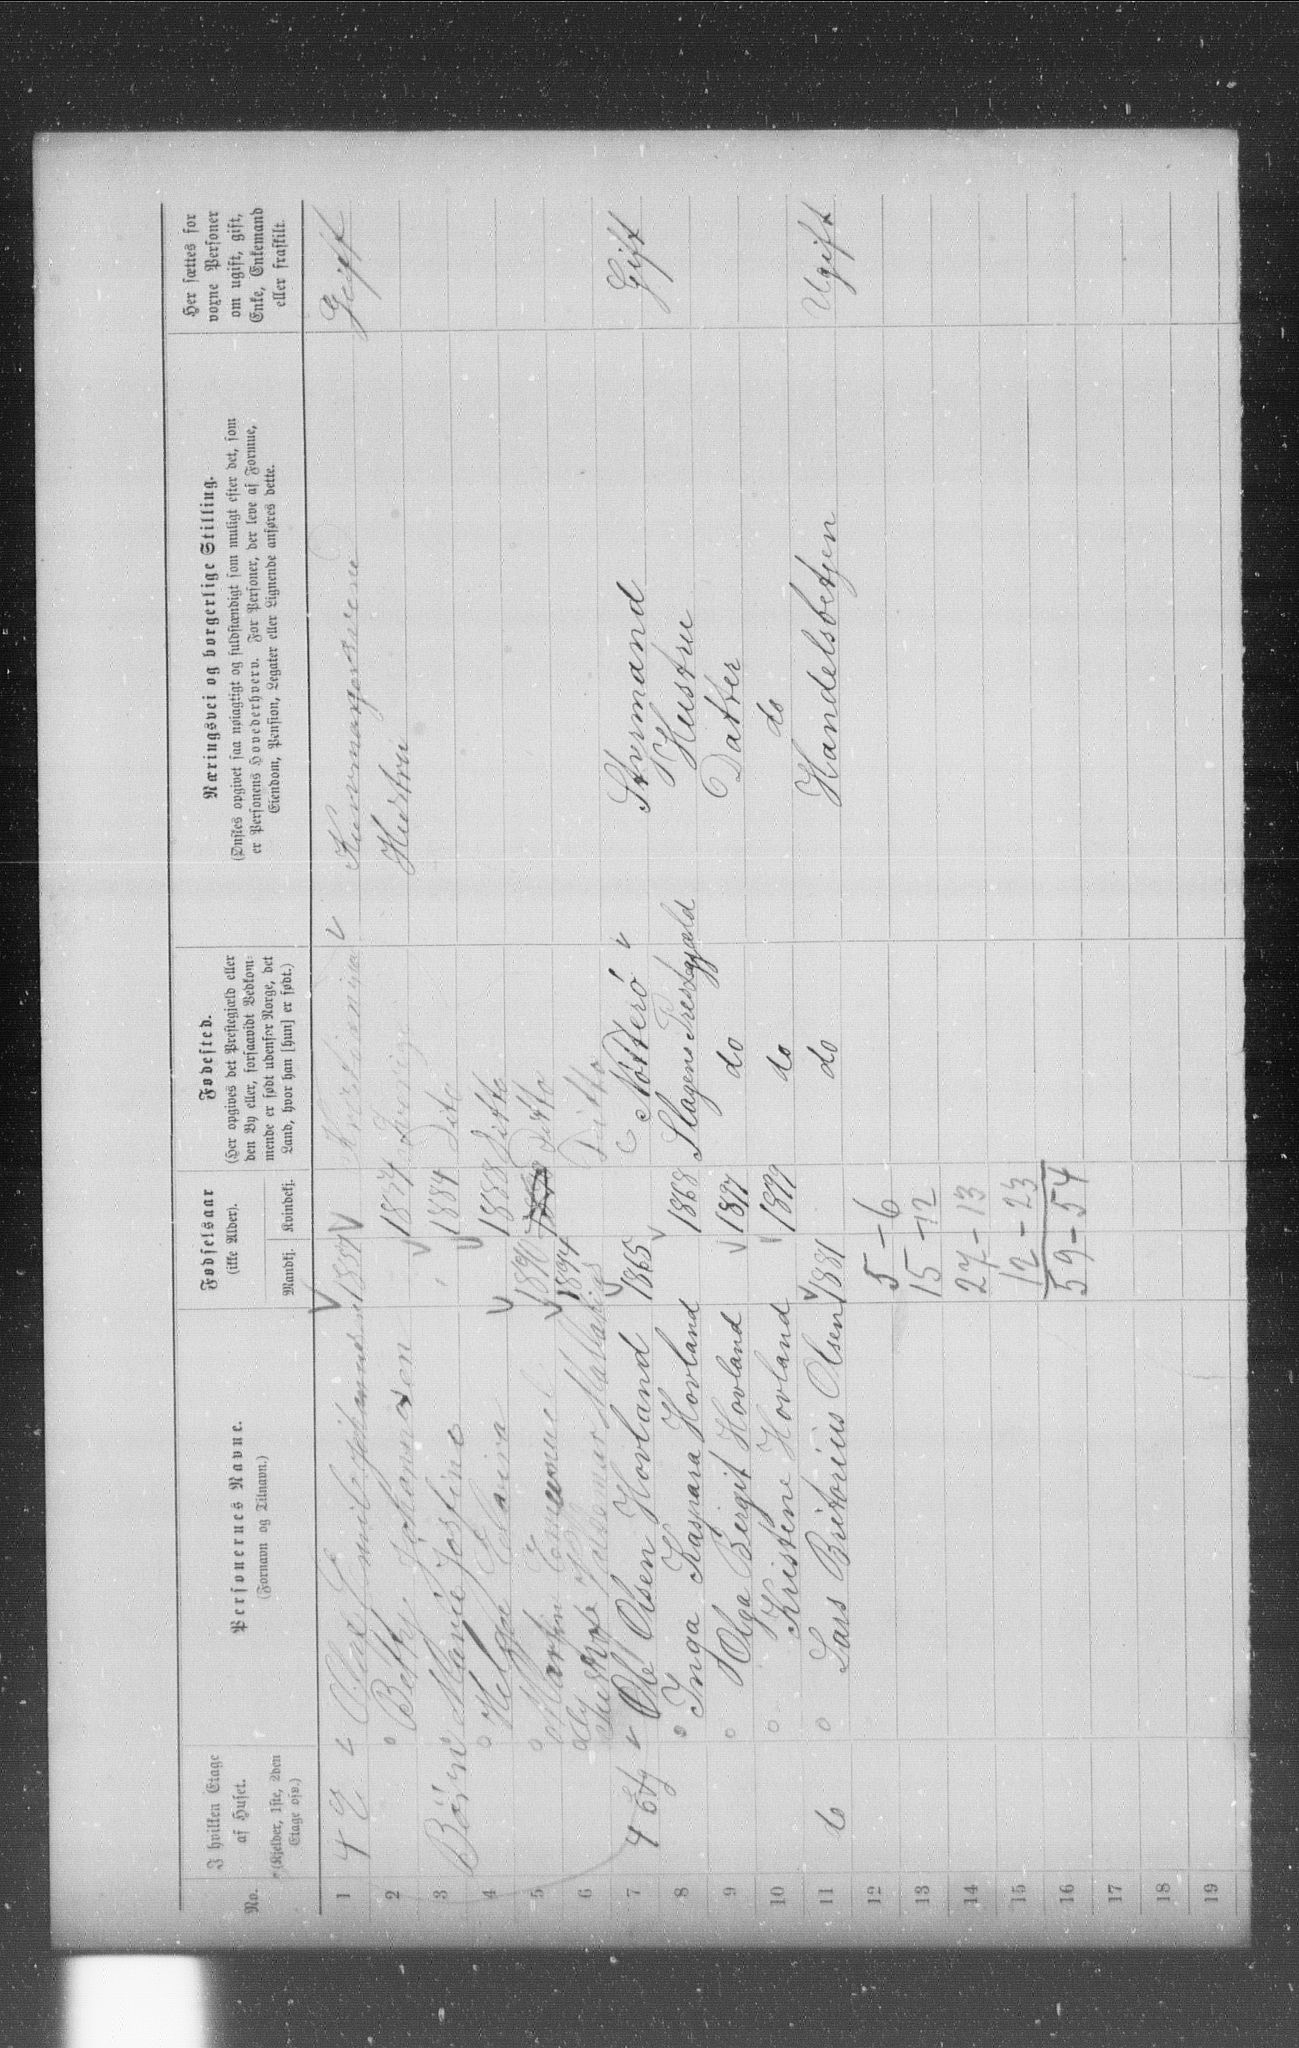 No.
I hvilken Etage
af Huset.
(Kjelder, 1ste, 2den
Etage osv.)
Personernes Navne.
(Fornavn og Tilnavn.)
Fødselsaar
(ikke Alder).
Mandkj. Kvindekj.
Fødested.
(Her opgives det Præstegjæld eller
den By eller, forsaavidt Vedkom-
mende er født udenfor Norge, det
Land, hvor han [hun] er født.)
Næringsvei og borgerlige Stilling.
(Ønskes opgivet saa nøiagtigt og fuldstændigt som muligt efter det, som
er Personens Hovederhverv. For Personer, der leve af Formue,
Eiendom, Pension, Legater eller Lignende anføres dette.
Her sættes for
voxne Personer
om ugift, gift,
Enke, Enkemand
eller fraskilt.
1 4 Emil Gift
2 Betty 1854 Sverige Hustru
3 Børn Marie Josfine 1884 Dito
4 Helga 1888 Ditto
5 Martin 1890 Ditto
6 1894 Ditto
7 4 Etg Ole Olsen Hovland 1865 Nøtterö Styrmand Gift
8 Inga Kaspara Hovland 1868 Slagens Prestegjæld Hustru
9 Olga Bergit Hovland 1897 do Datter
10 Kristine Hovland 1899 do do
11 Lars Olsen 1881 do Handelsbetjen Ugift
12 5 - 6
13 15 - 12
14 27 - 13
15 12 - 23
16 59 - 54
17
18
19